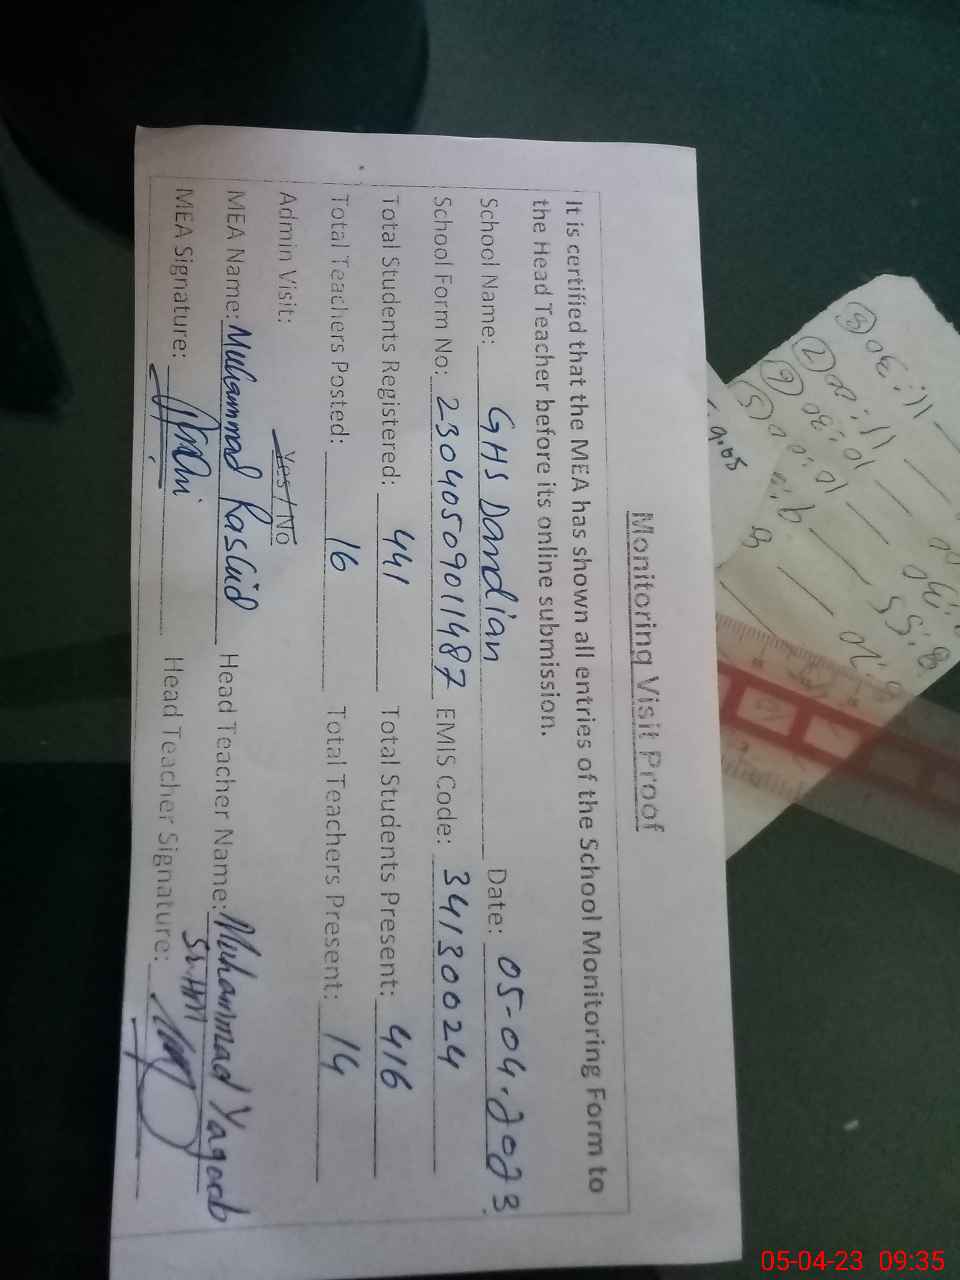 Monitoring Visit Proof
It is certified that the MEA has shown all entries of the School Monitoring Form to
the Head Teacher before its online submission.
School Name: GHS Dandian Date: 05-04-2023
School Form No: 23040509011487 EMIS Code: 34130024
Total Students Registered: 441 Total Students Present: 416
Total Teachers Posted: 16 Total Teachers Present: 14
Admin Visit: Yes / No
MEA Name: Muhammad Rashid Head Teacher Name: Muhammad Yaqoob
SHM
MEA Signature: Head Teacher Signature:
8:55
9:00
10:00
10:30
11:00
11:30
05-04-23 09:35